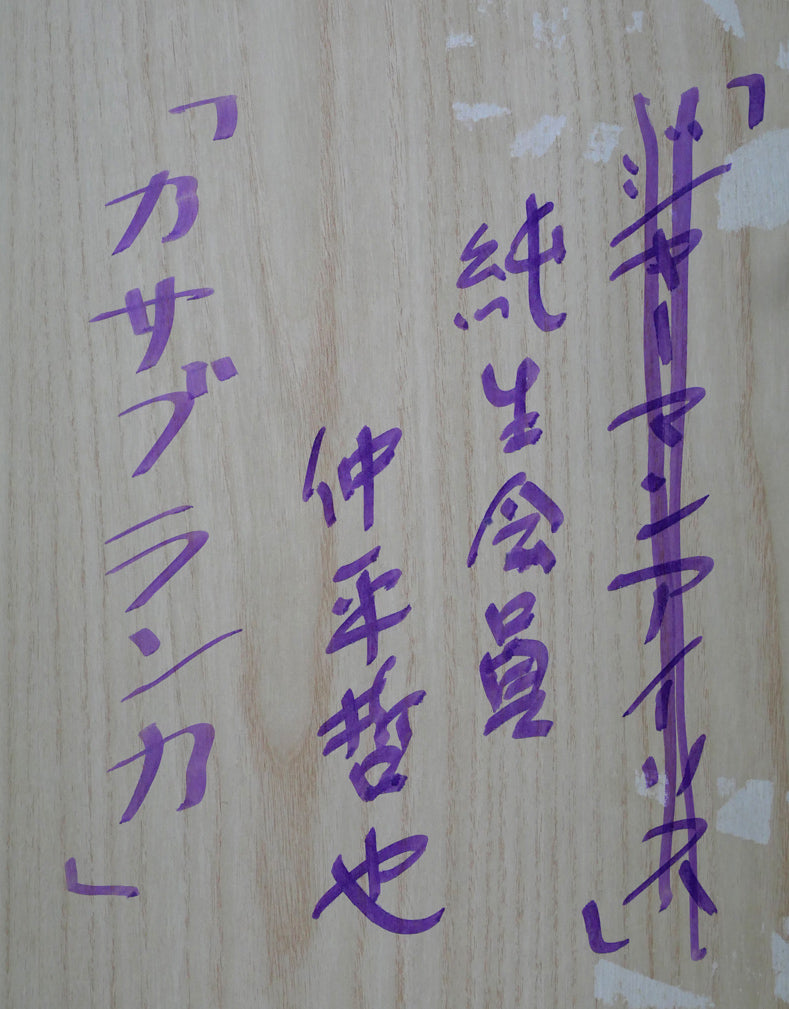 「ジャーマンアイリス」
純生会員
仲平哲也
「カサブランカ」